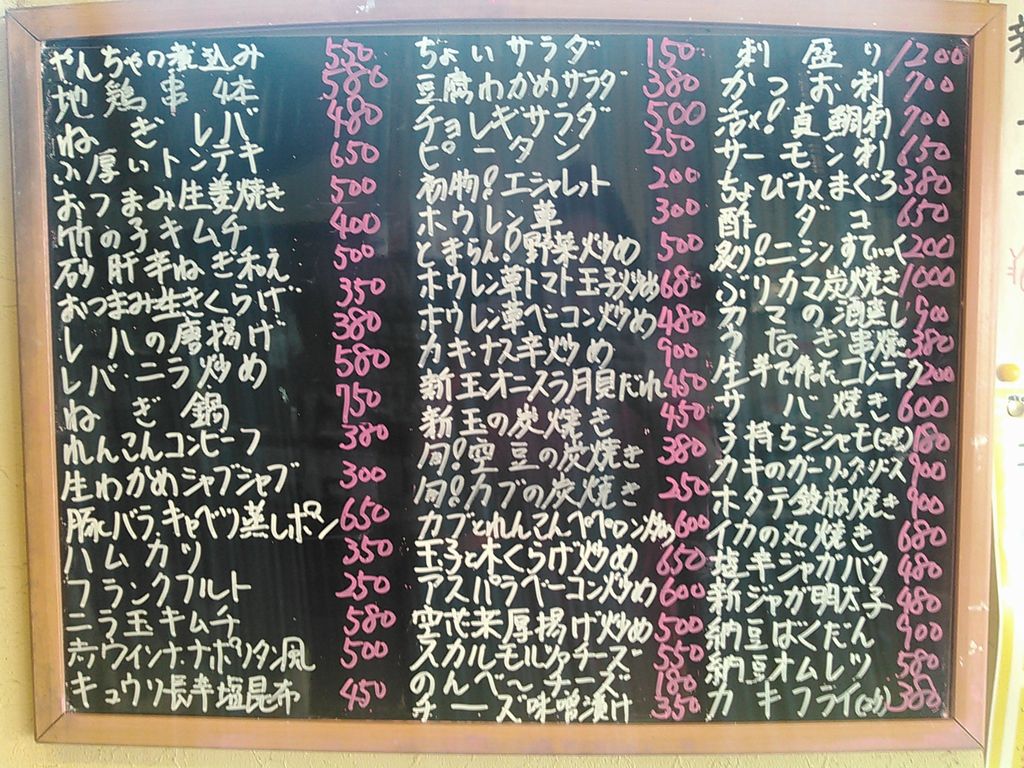 やんちゃの煮込み 550
地鶏串4本 580
ねぎレバ 480
ぶ厚いトンテキ 650
おつまみ生姜焼き 500
竹の子キムチ 400
砂肝辛ねぎ和え 500
おつまみ生きくらげ 350
レバの唐揚げ 380
レバ・ニラ炒め 580
ねぎ鍋 750
れんこんコンビーフ 380
生わかめシャブシャブ 300
豚バラ・キャベツ蒸しポン 650
ハムカツ 350
フランクフルト 250
ニラ玉キムチ 580
赤ウインナーナポリタン風 500
キュウリ長幸塩昆布 450
ちょいサラダ 150
豆腐わかめサラダ 380
チョレギサラダ 500
ピータン 250
初物!エシャレット 200
ホウレン草 300
とまらん!野菜炒め 500
ホウレン草トマト玉子炒め 680
ホウレン草ベーコン炒め 480
カキ・ナス辛炒め 900
新玉オニスラ月見だれ 450
新玉の炭焼き 450
旬!空豆の炭焼き 380
旬!カブの炭焼き 250
カブとれんこんペペロン炒め 600
玉子と木くらげ炒め 650
アスパラベーコン炒め 600
空芯菜厚揚げ炒め 500
スカルモルツァチーズ 550
のんべ〜チーズ 180
チーズ味噌漬け 350
刺盛り 1200
かつお刺 700
活〆!真鯛刺 700
サーモン刺 650
ちょびナメまぐろ 380
酢ダコ 650
炙!ニシンすてぃっく 200
ブリカマ炭焼き 1000
の酒蒸し 500
うなぎ串焼 380
生芋で作ったコンニャク 200
サバ焼き 600
子持ちシシャモ 180
カキのガーリックチーズ 900
ホタテ鉄板焼き 900
イカの丸焼き 680
塩辛ジャガバタ 480
新ジャガ明太子 480
納豆ばくだん 900
納豆オムレツ 580
カキフライ 380